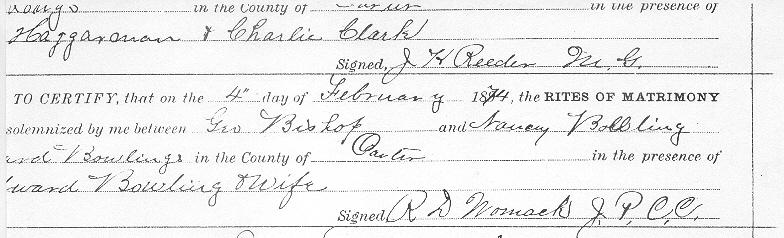 in the County of Carter in the presence of
Haggarman & Charlie Clark
Signed, J K Reeder M. G.
TO CERTIFY, that on the 4" day of February 1874, the RITES OF MATRIMONY
solemnized by me between Geo Bishop and Nancy Bolling
ard Bowlings in the County of Carter in the presence of
ward Bowling & Wife
Signed, R D Womack J. P. C. C.